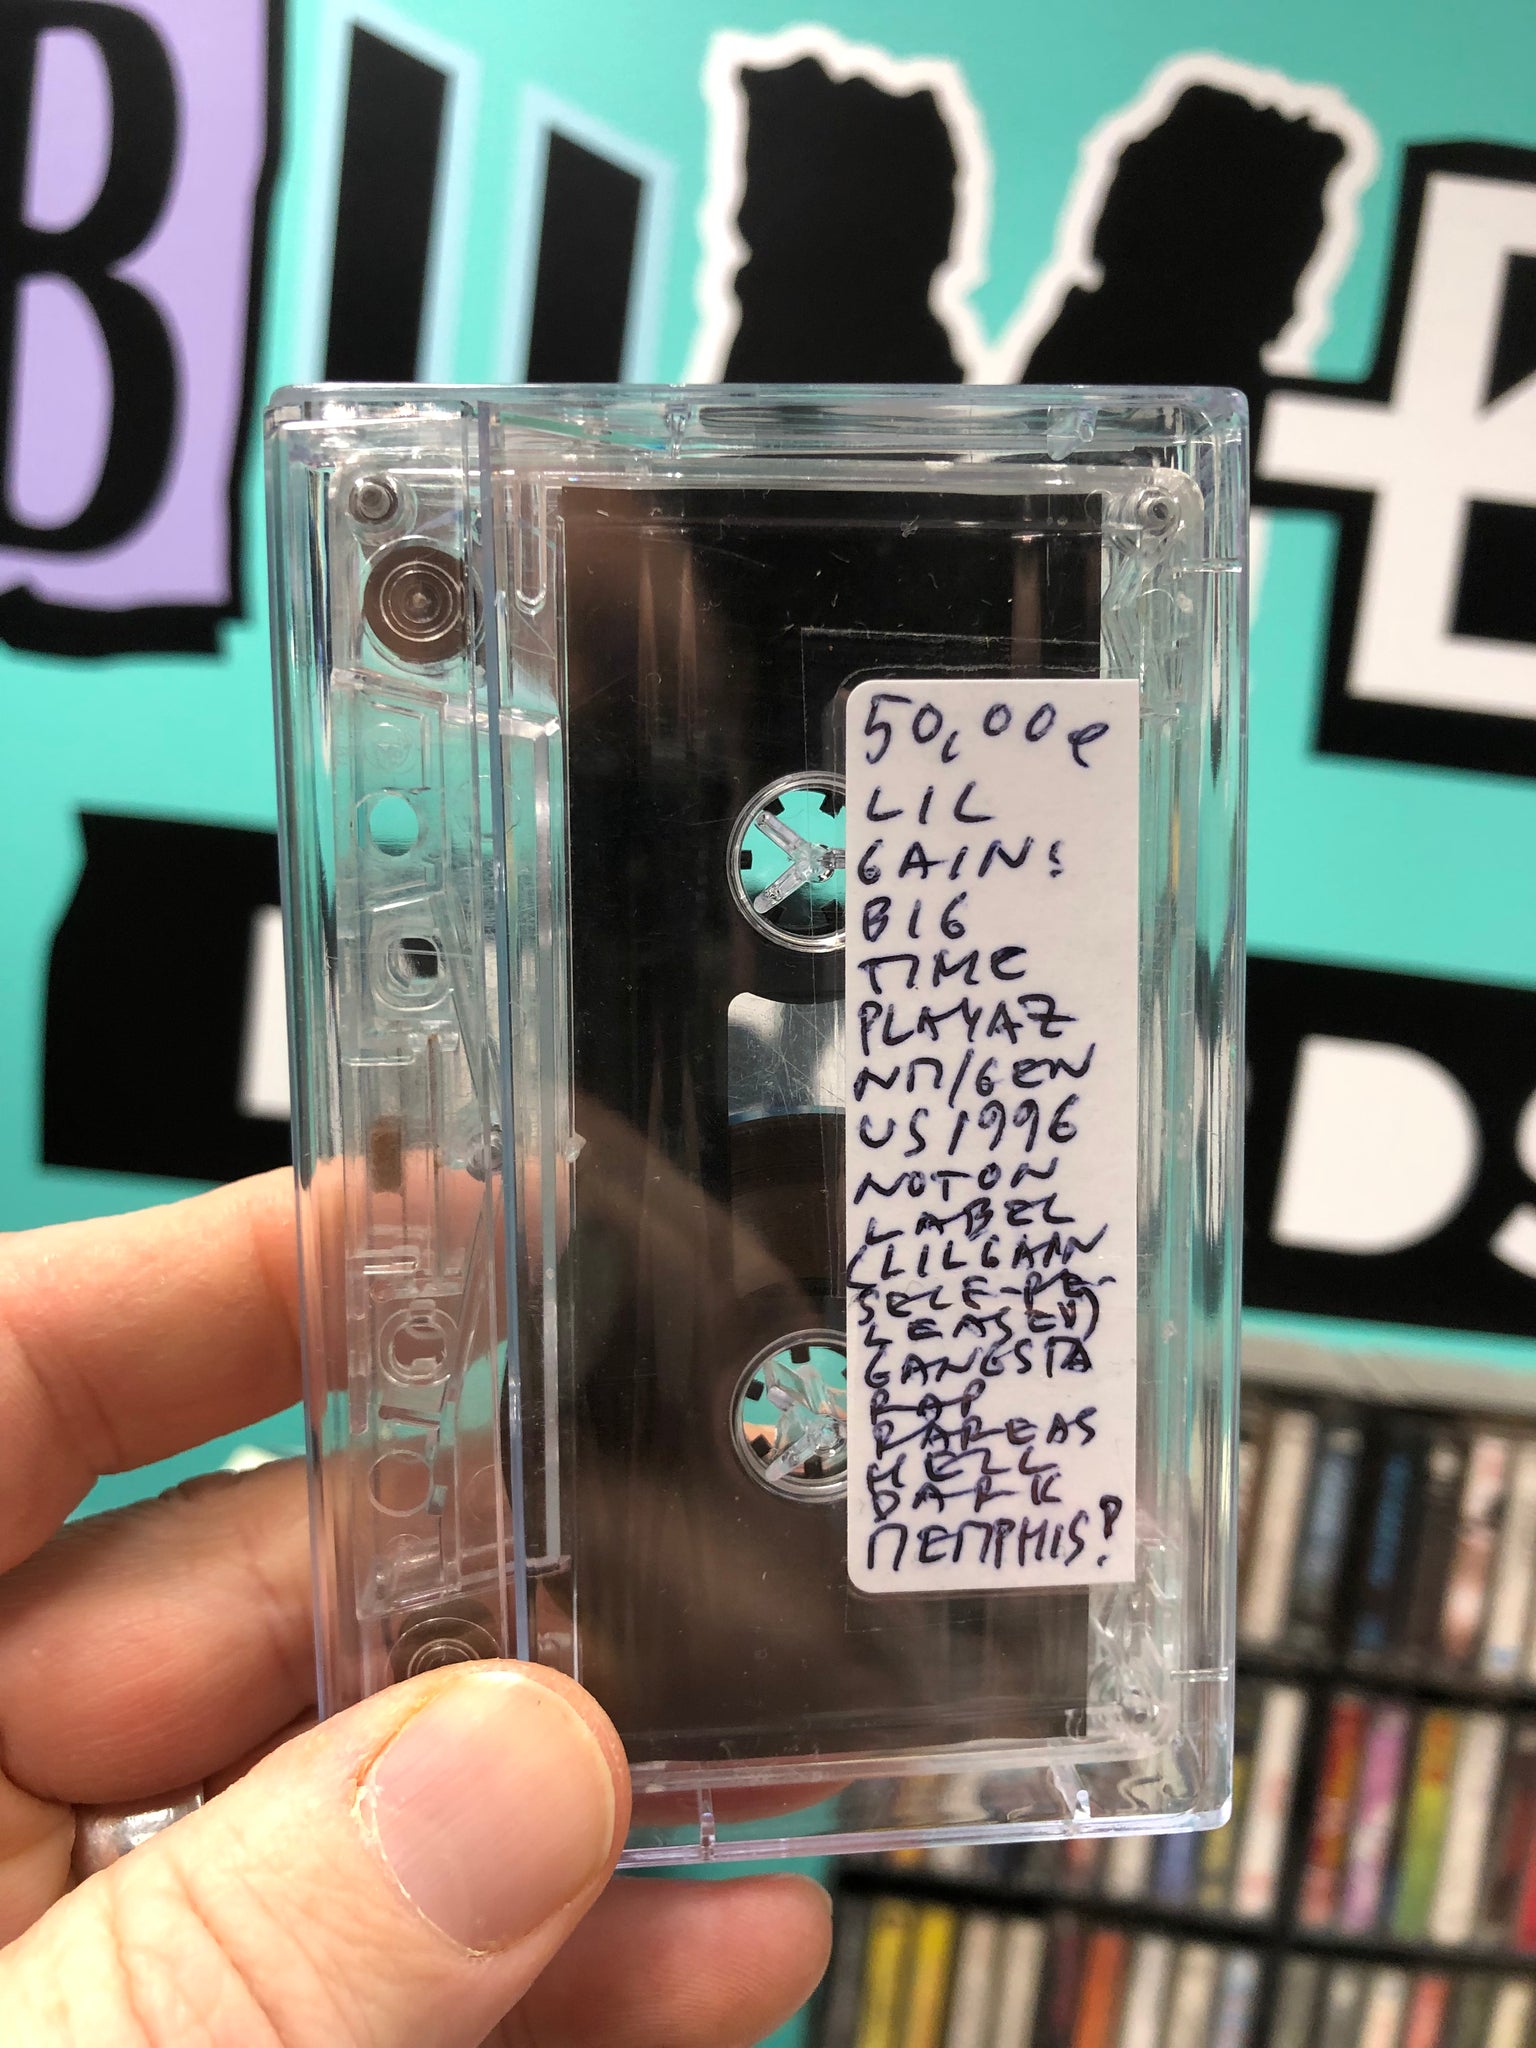 50,00e
LIL
GAIN:
BIG
TIME
PLAYAZ
NM/GEN
US 1996
NOT ON
LABEL
(LIL GAIN
SELF-RE-
LEASED)
GANGSTA
RAP
RARE AS
HELL
DARK
MEMPHIS!